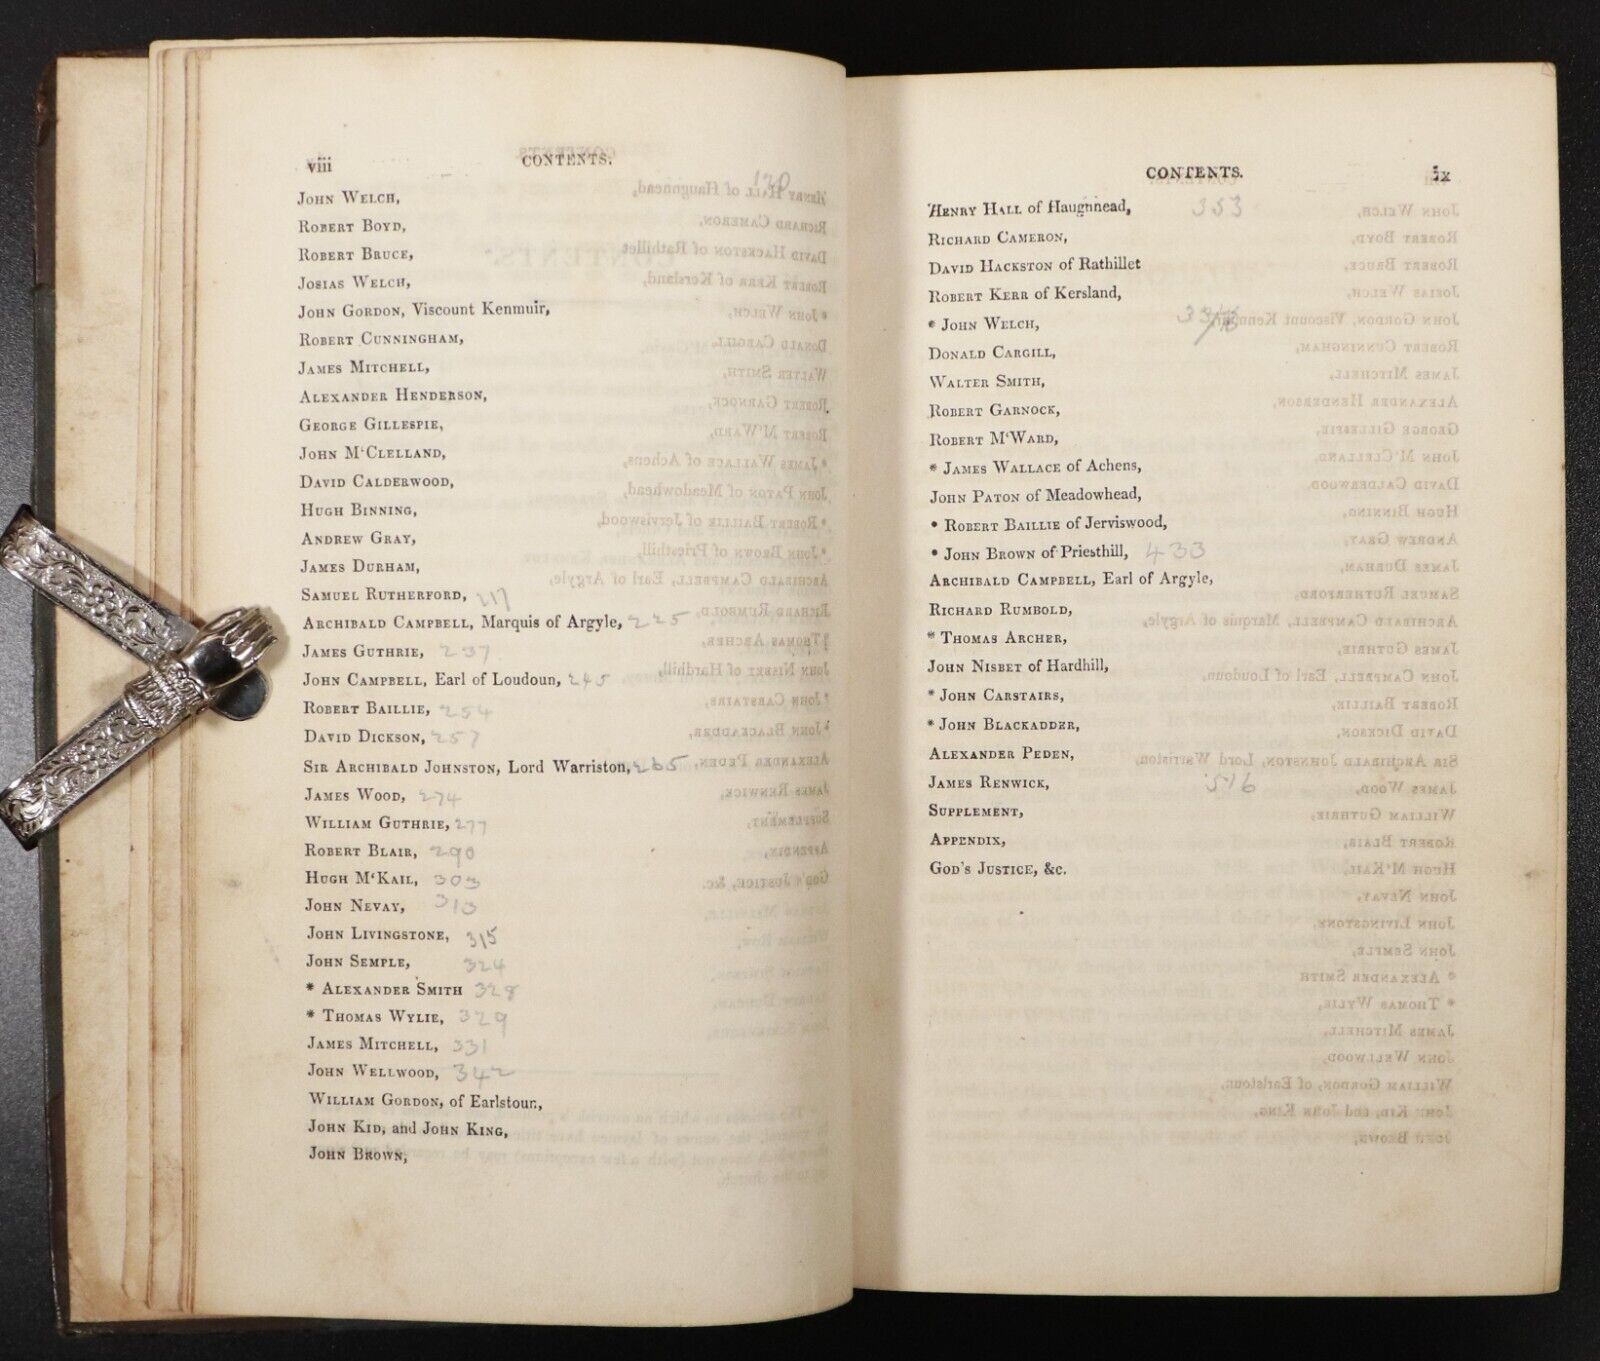 viii CONTENTS.
130
JOHN WELCH,
ROBERT BOYD,
ROBERT BRUCE,
JOSIAS WELCH,
JOHN GORDON, Viscount Kenmuir,
ROBERT CUNNINGHAM,
JAMES MITCHELL,
ALEXANDER HENDERSON,
GEORGE GILLESPIE,
JOHN M'CLELLAND,
DAVID CALDERWOOD,
HUGH BINNING,
ANDREW GRAY,
JAMES DURHAM,
SAMUEL RUTHERFORD, 217
ARCHIBALD CAMPBELL, Marquis of Argyle, 225
JAMES GUTHRIE, 237
JOHN CAMPBELL, Earl of Loudoun, 245
ROBERT BAILLIE, 254
DAVID DICKSON, 257
SIR ARCHIBALD JOHNSTON, Lord Warriston, 265
JAMES WOOD, 274
WILLIAM GUTHRIE, 277
ROBERT BLAIR, 290
HUGH M'KAIL, 303
JOHN NEVAY, 313
JOHN LIVINGSTONE, 315
JOHN SEMPLE, 324
* ALEXANDER SMITH 328
* THOMAS WYLIE, 329
JAMES MITCHELL, 331
JOHN WELLWOOD, 342
WILLIAM GORDON, of Earlstour,
JOHN KID, and JOHN KING,
JOHN BROWN,
CONTENTS. ix
HENRY HALL of Haughhead, 353
RICHARD CAMERON,
DAVID HACKSTON of Rathillet
ROBERT KERR of Kersland,
* JOHN WELCH,
DONALD CARGILL,
WALTER SMITH,
ROBERT GARNOCK,
ROBERT M'WARD,
* JAMES WALLACE of Achens,
JOHN PATON of Meadowhead,
* ROBERT BAILLIE of Jerviswood,
* JOHN BROWN of Priesthill, 433
ARCHIBALD CAMPBELL, Earl of Argyle,
RICHARD RUMBOLD,
* THOMAS ARCHER,
JOHN NISBET of Hardhill,
* JOHN CARSTAIRS,
* JOHN BLACKADDER,
ALEXANDER PEDEN,
JAMES RENWICK, 516
SUPPLEMENT,
APPENDIX,
GOD'S JUSTICE, &c.